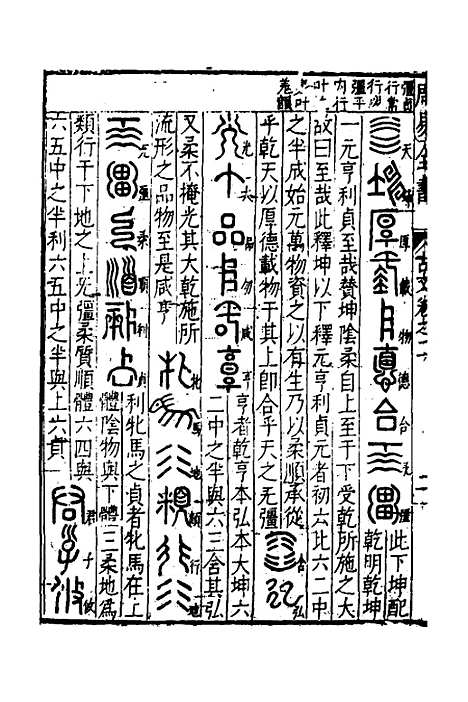 周易全書
古文卷之
天厚載物德合无疆
此下坤配
乾明乾坤
一元亨利貞至哉贊坤陰柔自上至于下受乾所施之大
故曰至哉此釋坤以下釋元亨利貞元者初六比六二中
之半成始元萬物資之以有生乃以柔順承從
乎乾天以厚德載物于其上即合乎天之无疆
含弘
光大品物咸亨
亨者乾亨本弘本大坤六
二中之半與六三含其弘
又柔不掩光其大乾施所
流形之品物至是咸亨
牝馬地類行地
无疆柔順利貞
利牝馬之貞者牝馬在上
體陰物與下體三柔地為
類行于下地之上无疆柔質順體六四與
六五中之半利六五中之半與上六貞
君子攸